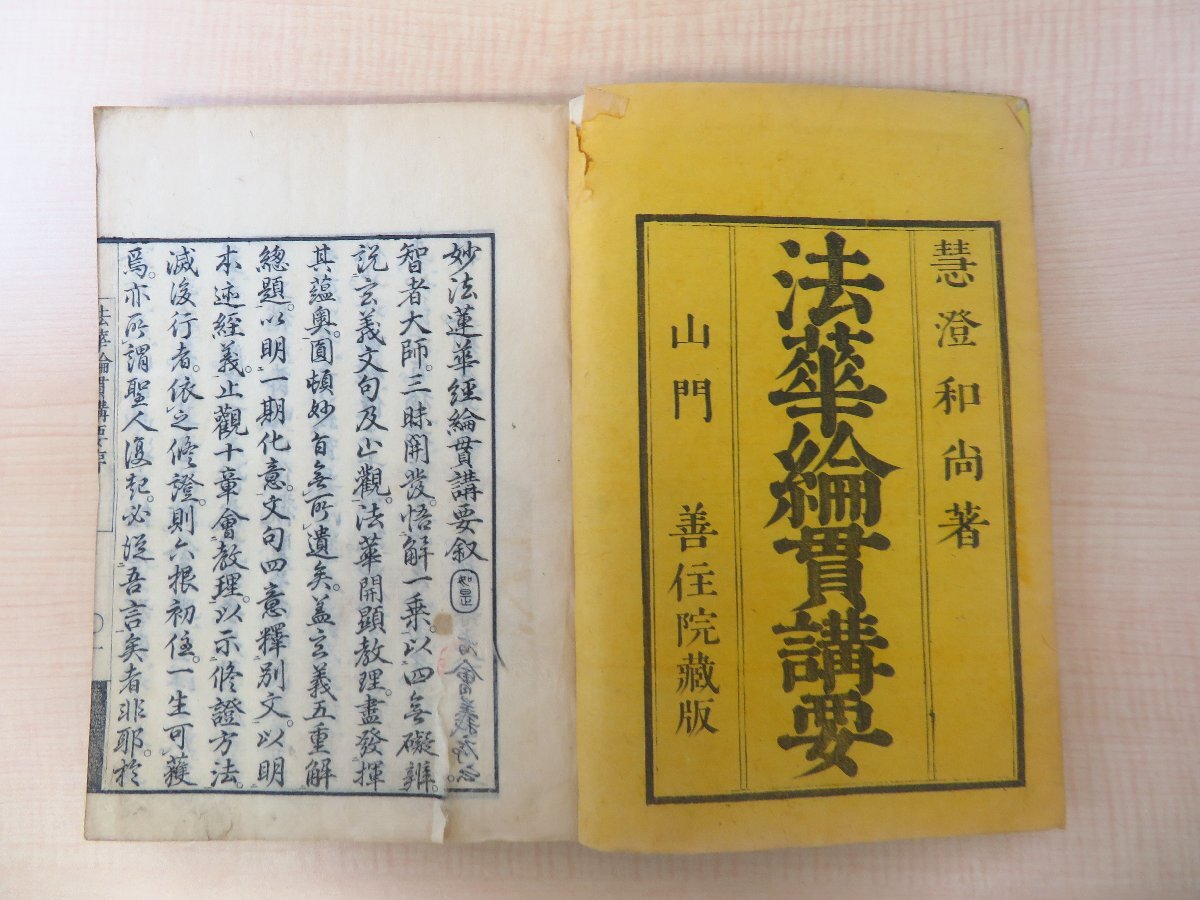 慧澄和尚著
法華綸貫講要
山門 善住院藏版
妙法蓮華經綸貫講要叙
如是
智者大師。三昧開發。悟解一乘。以四無礙辨。
説玄義文句及止觀。法華開顯教理。盡發揮
其蘊奧。圓頓妙旨無所遺矣。蓋玄義五重解
總題。以明一期化意。文句四意釋別文。以明
本迹經義。止觀十章會教理。以示修證方法。
滅後行者。依之修證。則六根初住。一生可獲
焉。亦所謂聖人復起。必從吾言矣者非耶。於
法華綸貫講要序
一